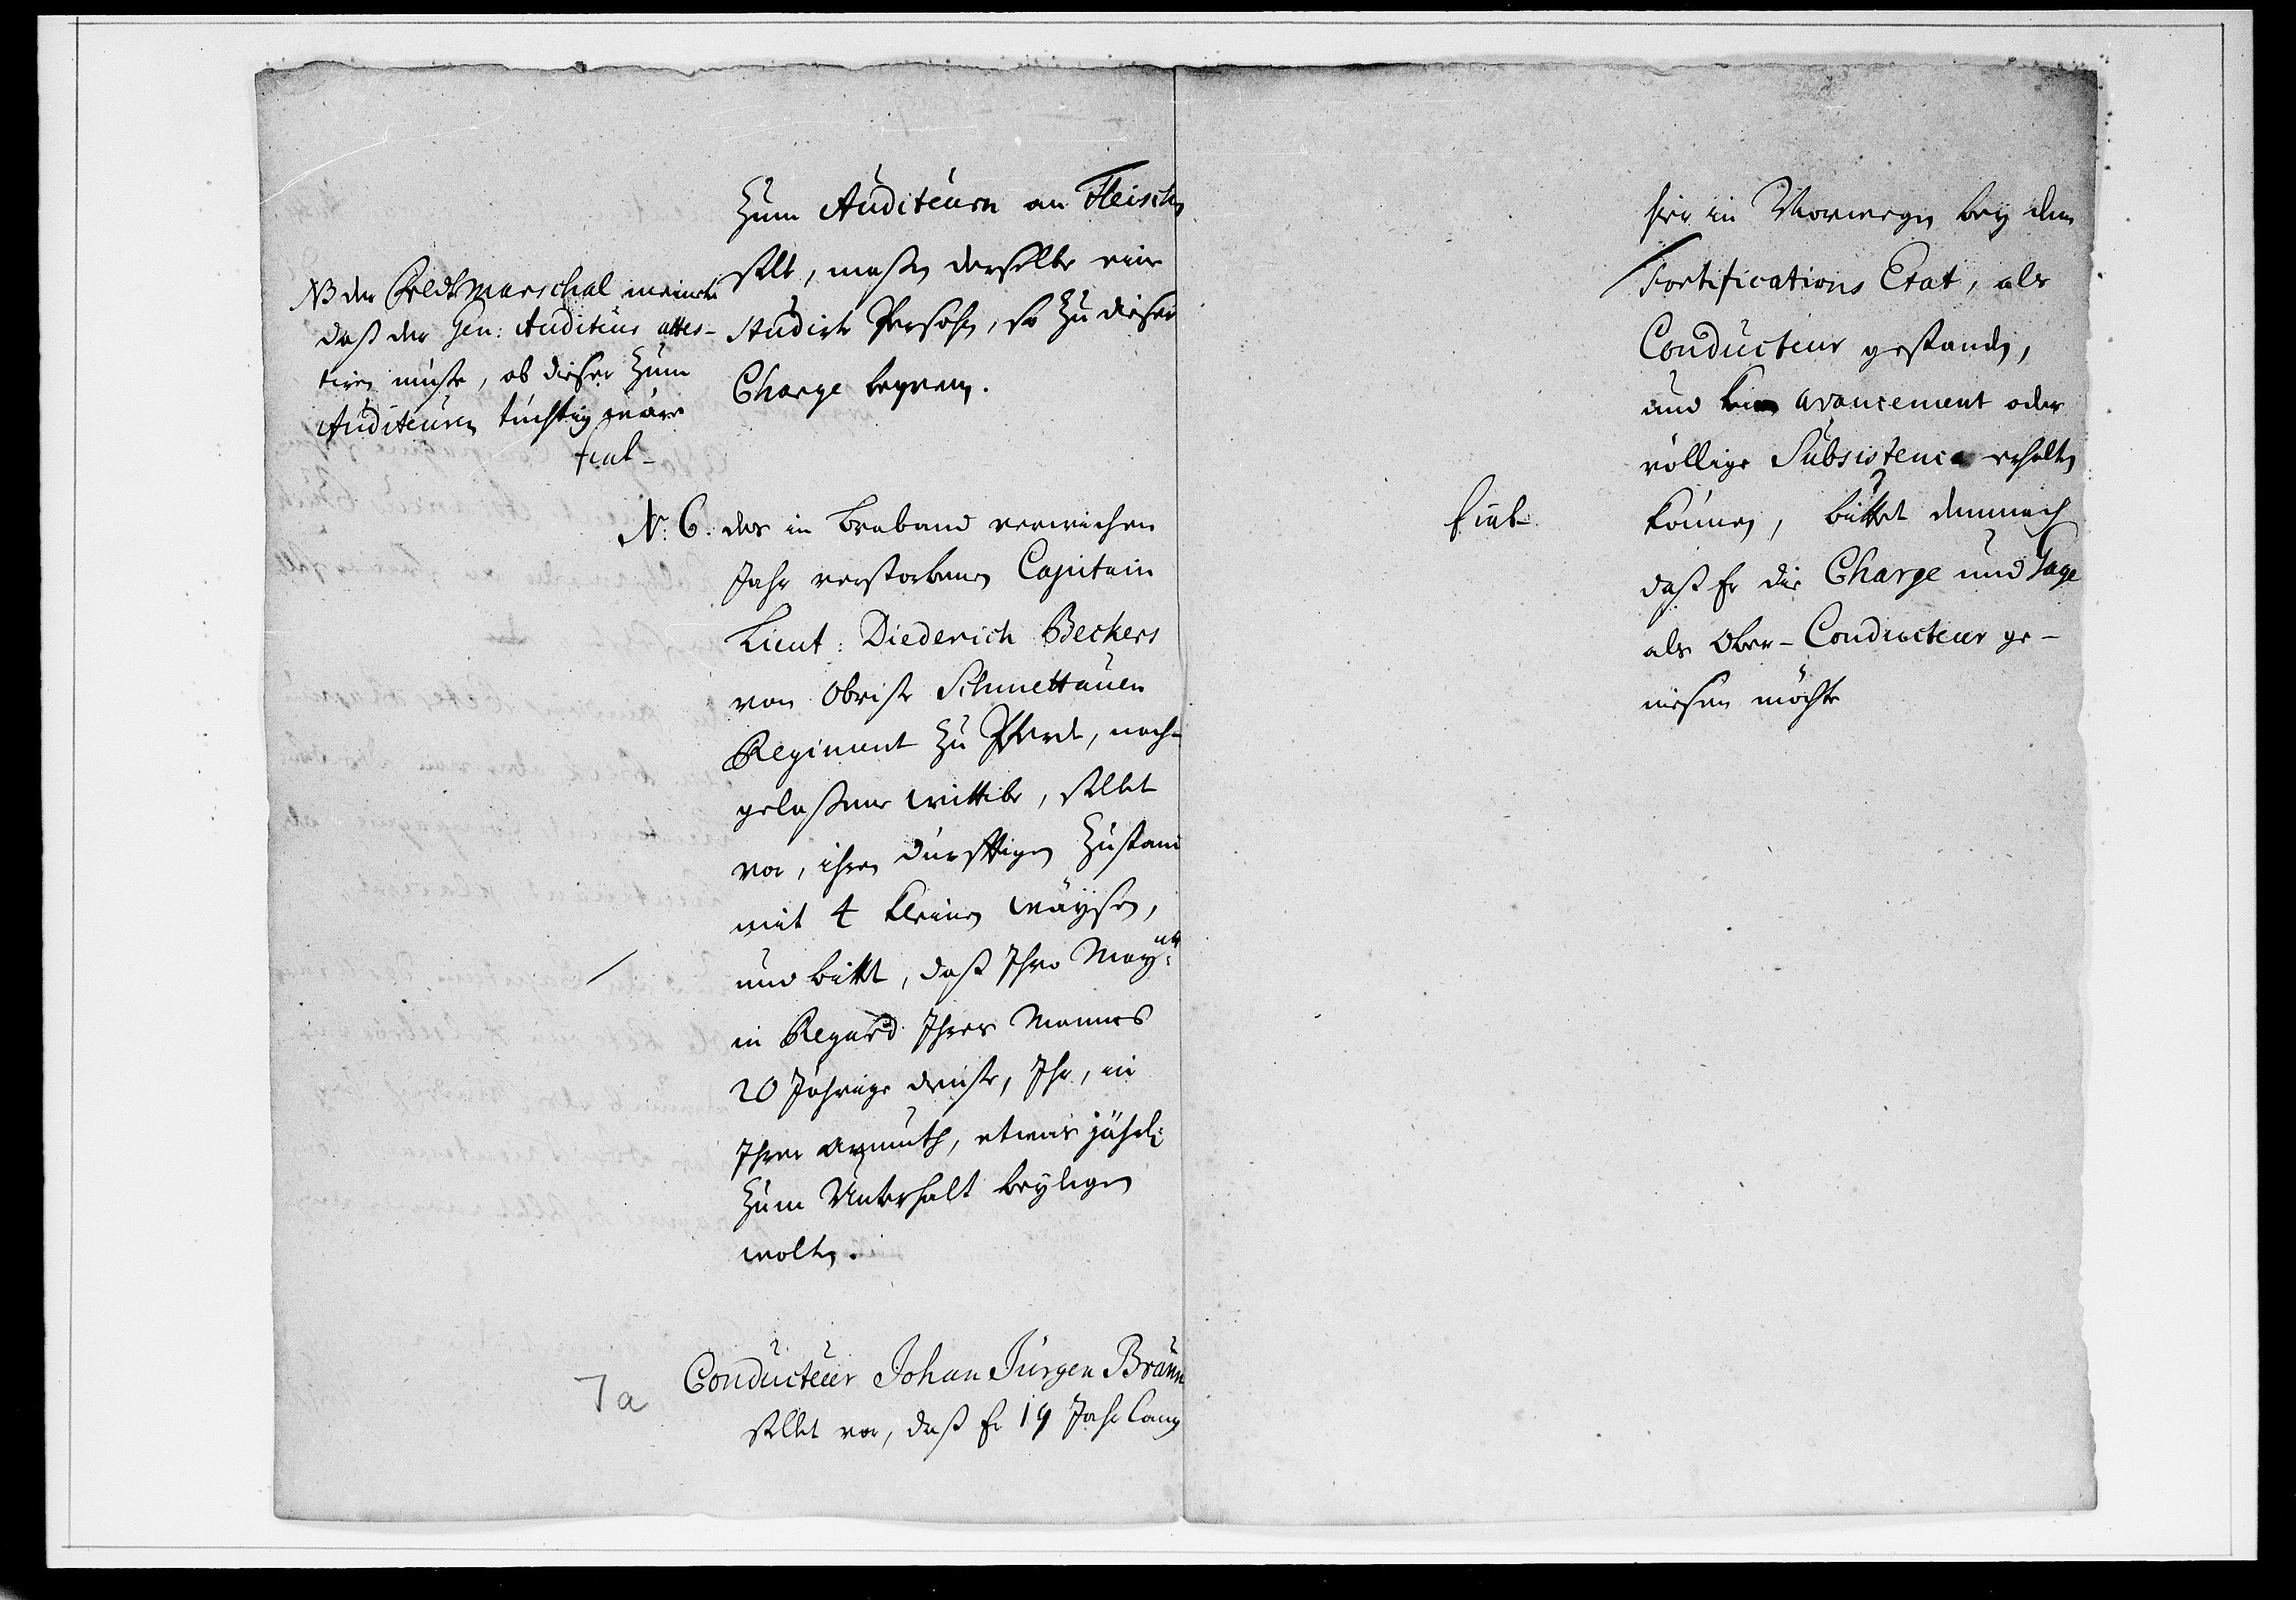 Zum Auditeurn an Fleischer
stelle, maßen derselbe eine
Studirte Persohn, so zu dieser
Charge beqvem.
NB der Feldt Marschal meinete
daß der Gen: Auditeur attes-
tiren müste, ob dieser zum
Auditeuren tüchtig wäre
fiat-
N: 6. des in Braband verwichen
Jahr verstorbenen Capitain
Lieut: Diederich Beckers
von Obrist Schmettauen
Regiment zu Pferdt, nach-
gelaßene Wittibe, stellet
vor, ihren dürfftigen Zustand
mit 4 kleinen Wäysen,
und bittet, daß Ihro Mayt:
in Regard Ihres Mannes
20 Jährige dienste, Ihr, in
Ihrer Armuth, etwas jährl:
zum Unterhalt beylegen
wolten.
7a
Conducteur Johan Jürgen Braun
stellet vor, daß Er 19 Jahr lang
hier in Norwegen bey dem
Fortifications Etat, als
Conducteur gestanden,
und kein avancement oder
völlige Subsistence erhalten
können, bittet demnach
fiat-
daß Er die Charge und Gage
als Ober-Conducteur ge-
niesen möchte